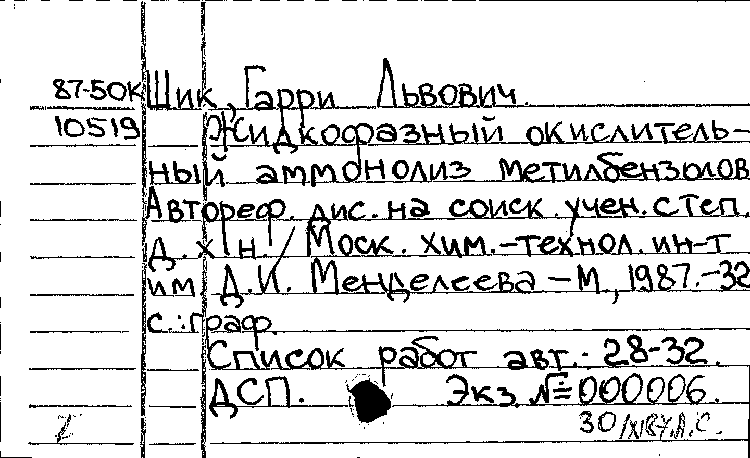 87-50К Шик, Гарри Львович.
10519 Жидкофазный окислитель-
ный аммонолиз метилбензолов
Автореф. дис. на соиск. учен. степ.
д.х.н. / Моск. хим.-технол. ин-т
им Д.И. Менделеева – М., 1987.-32
с.:граф.
Список работ авт.: 28-32.
ДСП. Экз. № 000006.
30/